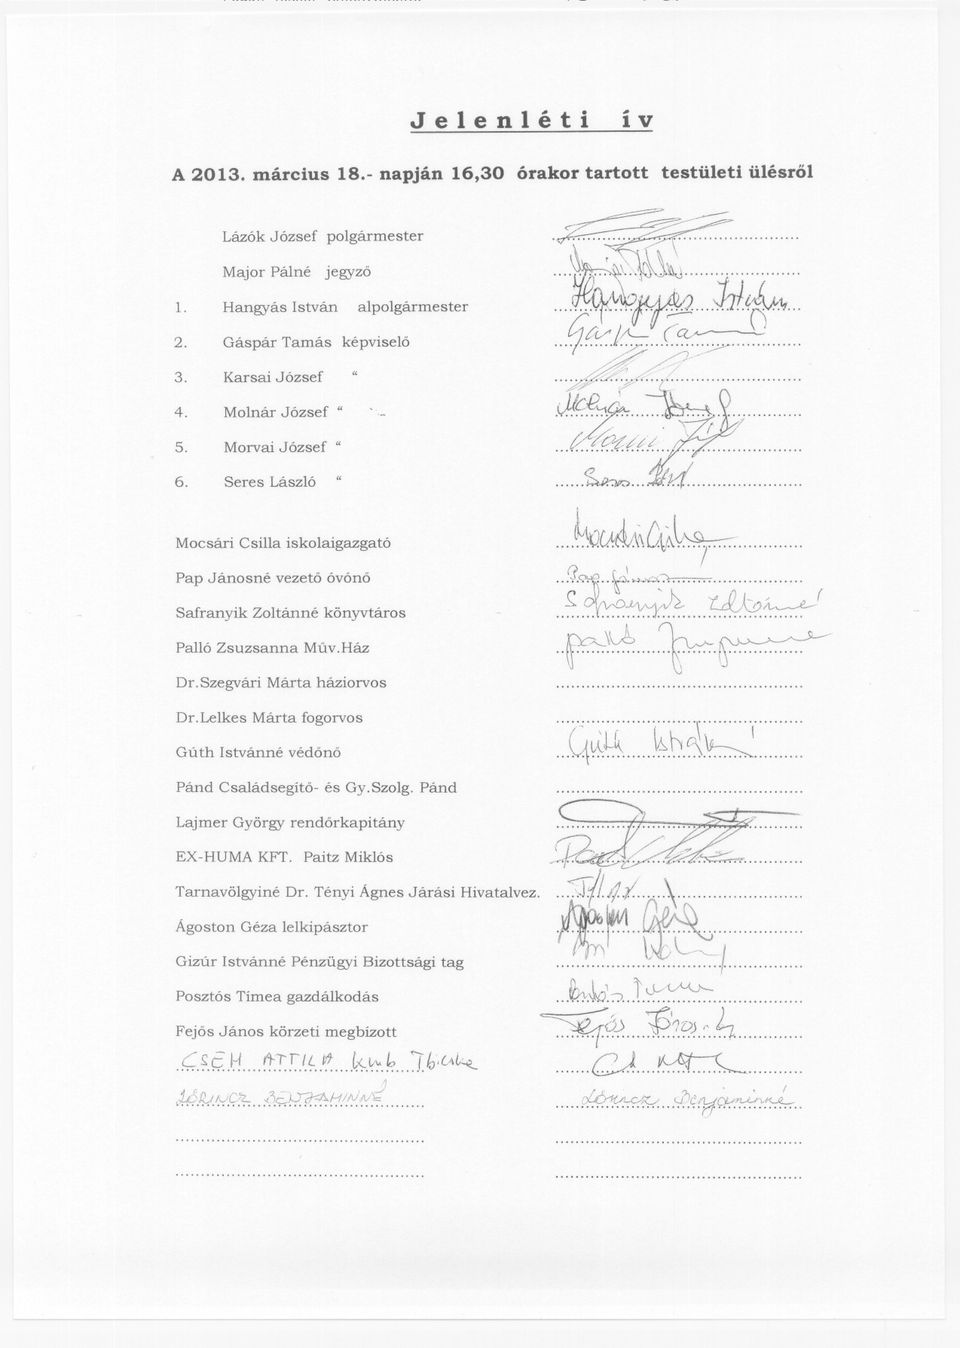 Jelenléti ív
A 2013. március 18.- napján 16,30 órakor tartott testületi ülésről
Lázók József polgármester
Major Pálné jegyző
1. Hangyás István alpolgármester Hangyás István
2. Gáspár Tamás képviselő
3. Karsai József "
4. Molnár József " Molnár József
5. Morvai József " Morvai József
6. Seres László " Seres
Mocsári Csilla iskolaigazgató Mocsári Csilla
Pap Jánosné vezető óvónő Pap Jánosné
Safranyik Zoltánné könyvtáros Safranyik Zoltánné
Palló Zsuzsanna Műv.Ház Palló Zsuzsanna
Dr.Szegvári Márta háziorvos
Dr.Lelkes Márta fogorvos
Gúth Istvánné védőnő Gúth Istvánné
Pánd Családsegítő- és Gy.Szolg. Pánd
Lajmer György rendőrkapitány
EX-HUMA KFT. Paitz Miklós
Tarnavölgyiné Dr. Tényi Ágnes Járási Hivatalvez.
Ágoston Géza lelkipásztor Ágoston Géza
Gizúr Istvánné Pénzügyi Bizottsági tag
Posztós Tímea gazdálkodás
Fejős János körzeti megbízott Fejős János
CSEH ATTILA
LŐRINCZ BENJAMINNÉ Lőrincz Benjáminné